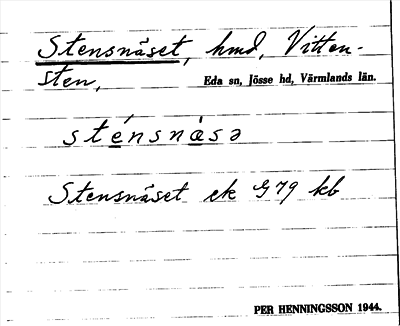 Stensnäset, hmd, Vitten-
sten,
Eda sn, Jösse hd, Värmlands län.
sténsnäsə
Stensnäset ek G79 kb
PER HENNINGSSON 1944.